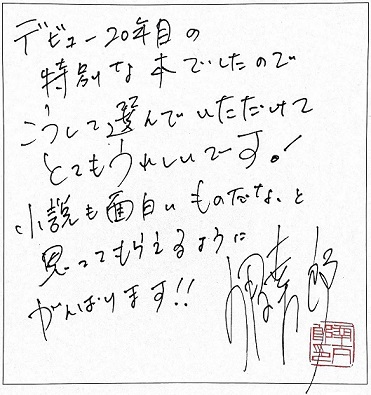 デビュー20年目の
特別な本でしたので
こうして選んでいただけて
とてもうれしいです!
小説も面白いものだな、と
思ってもらえるように
がんばります!!